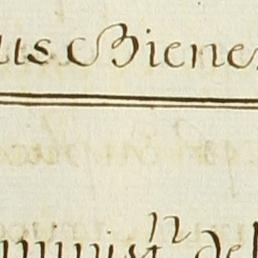 us Bienes
minist.n del